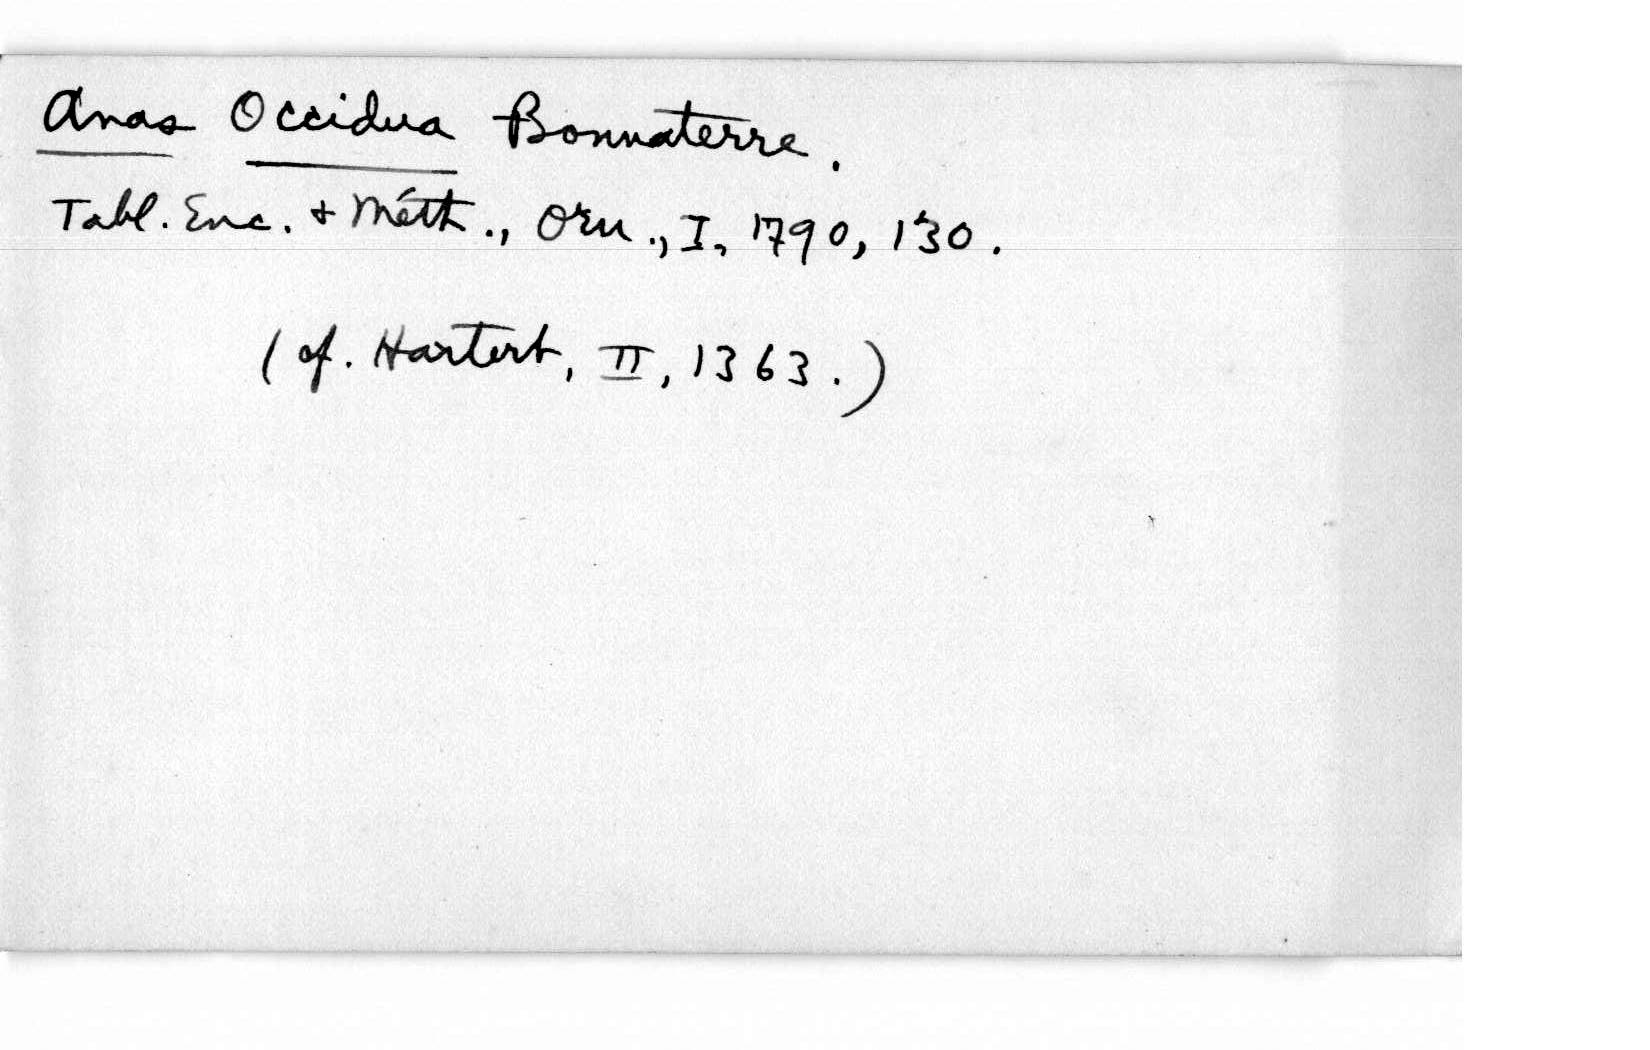 Anas Occidua Bonnaterre.
Tabl. Enc. & Méth., Orn., I, 1790, 130.
(cf. Hartert, II, 1363.)